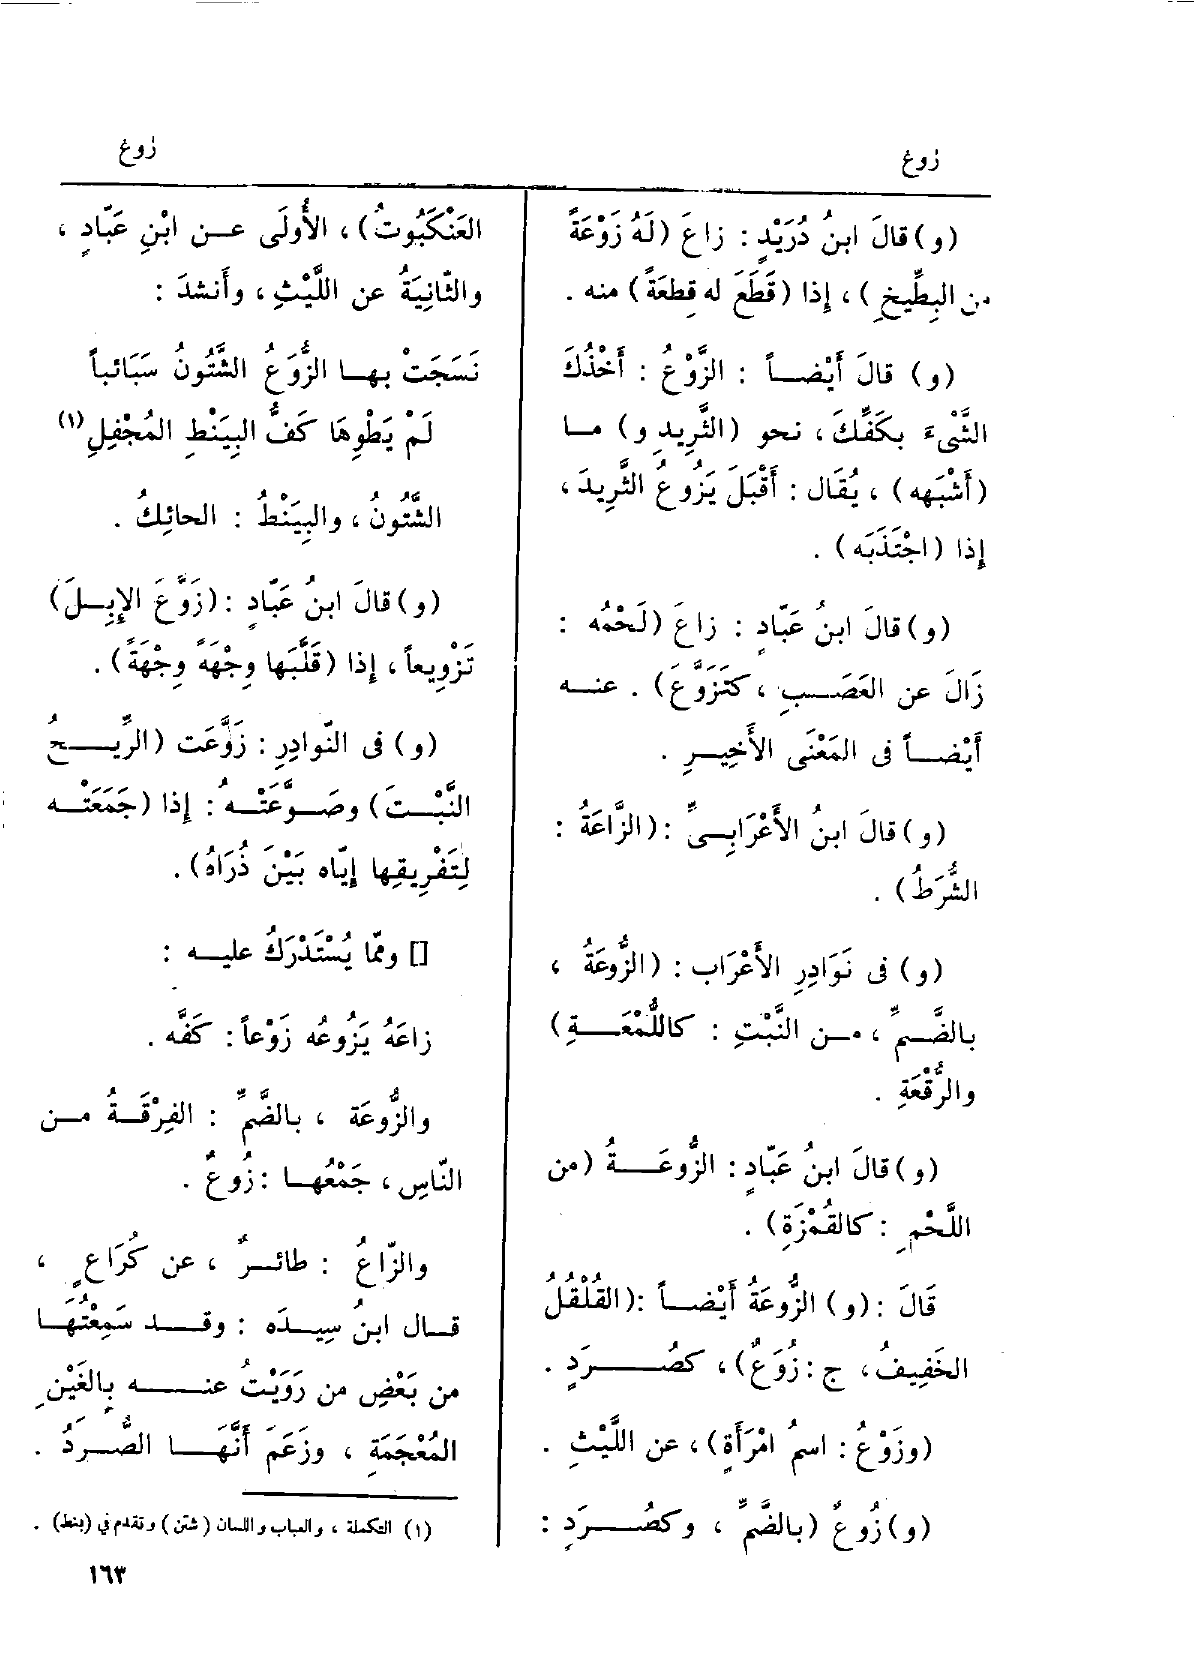 زوغ
زوغ
(و) قالَ ابنُ دُرَيْدٍ : زاعَ (لَهُ زَوْعَةً
من البِطِّيخِ) ، إذا (قَطَعَ له قِطعَةً) منه .
(و) قالَ أَيْضـاً : الزَّوْعُ : أَخْذُكَ
الشَّىْءَ بكَفِّكَ ، نحو (الثَّرِيدِ و) مـا
(أَشْبَهه) ، يُقَال : أَقْبَلَ يَزُوعُ الثَّرِيدَ ،
إذا (اجْتَذَبَه) .
(و) قالَ ابنُ عَبّادٍ : زاعَ (لَحْمُه :
زَالَ عن العَصَـبِ ، كتَزَوَّعَ) . عنـه
أَيْضـاً فى المَعْنَى الأَخِيـرِ .
(و) قالَ ابنُ الأَعْرَابِـىِّ : (الزَّاعَةُ :
الشُّرَطُ) .
(و) فى نَوَادِرِ الأَعْرَاب : (الزُّوعَةُ ،
بالضَّـمِّ ، مـن النَّبْتِ : كاللُّمْعَـةِ)
والرُّقْعَةِ .
(و) قالَ ابنُ عَبّادٍ : الزُّوعَـةُ (من
اللَّحْمِ : كالقُمْزَةِ) .
قَالَ : (و) الزُّوعَةُ أَيْضـاً : (القُلْقُلُ
الخَفِيفُ ، ج : زُوَعٌ) ، كصُـرَدٍ .
(وزَوْعُ : اسمُ امْرَأَةٍ) ، عن اللَّيْثِ .
(و) زُوعٌ (بالضَّمِّ ، وكصُـرَدٍ :
العَنْكَبُوتُ) ، الأُولَى عـن ابْنِ عَبّادٍ ،
والثّانِيَةُ عن اللَّيْثِ ، وأَنشدَ :
نَسَجَتْ بهـا الزُّوَعُ الشَّتُونُ سَبَائباً
لَمْ يَطْوِهَا كَفُّ البِيَنْطِ المُجْفِلِ (١)
الشَّتُونُ ، والبِيَنْطُ : الحائِكُ .
(و) قالَ ابنُ عَبّادٍ : (زَوَّعَ الإِبِـلَ)
تَزْوِيعاً ، إذا (قَلَّبَها وِجْهَةً وِجْهَةً) .
(و) فى النّوادِرِ : زَوَّعَت (الرِّيـحُ
النَّبْـتَ) وصَـوَّعَتْـهُ : إذا (جَمَعَتْـه
لِتَفْرِيقِها إيّاه بَيْنَ ذُرَاهُ) .
[] وممّا يُسْتَدْرَكُ عليـه :
زاعَهُ يَزُوعُه زَوْعاً : كَفَّه .
والزُّوعَة ، بالضَّمِّ : الفِرْقَـةُ مـن
النّاسِ ، جَمْعُهـا : زُوعٌ .
والزّاعُ : طائـرٌ ، عن كُرَاعٍ ،
قـال ابنُ سِيـدَه : وقـد سَمِعْتُهَـا
من بَعْضِ من رَوَيْتُ عنـه بِالغَيْنِ
المُعْجَمَةِ ، وزَعَمَ أَنَّهَـا الصُّـرَدُ .
(١) التكملة ، والعباب واللسان (شتن) وتقدم في (بنط) .
١٦٣